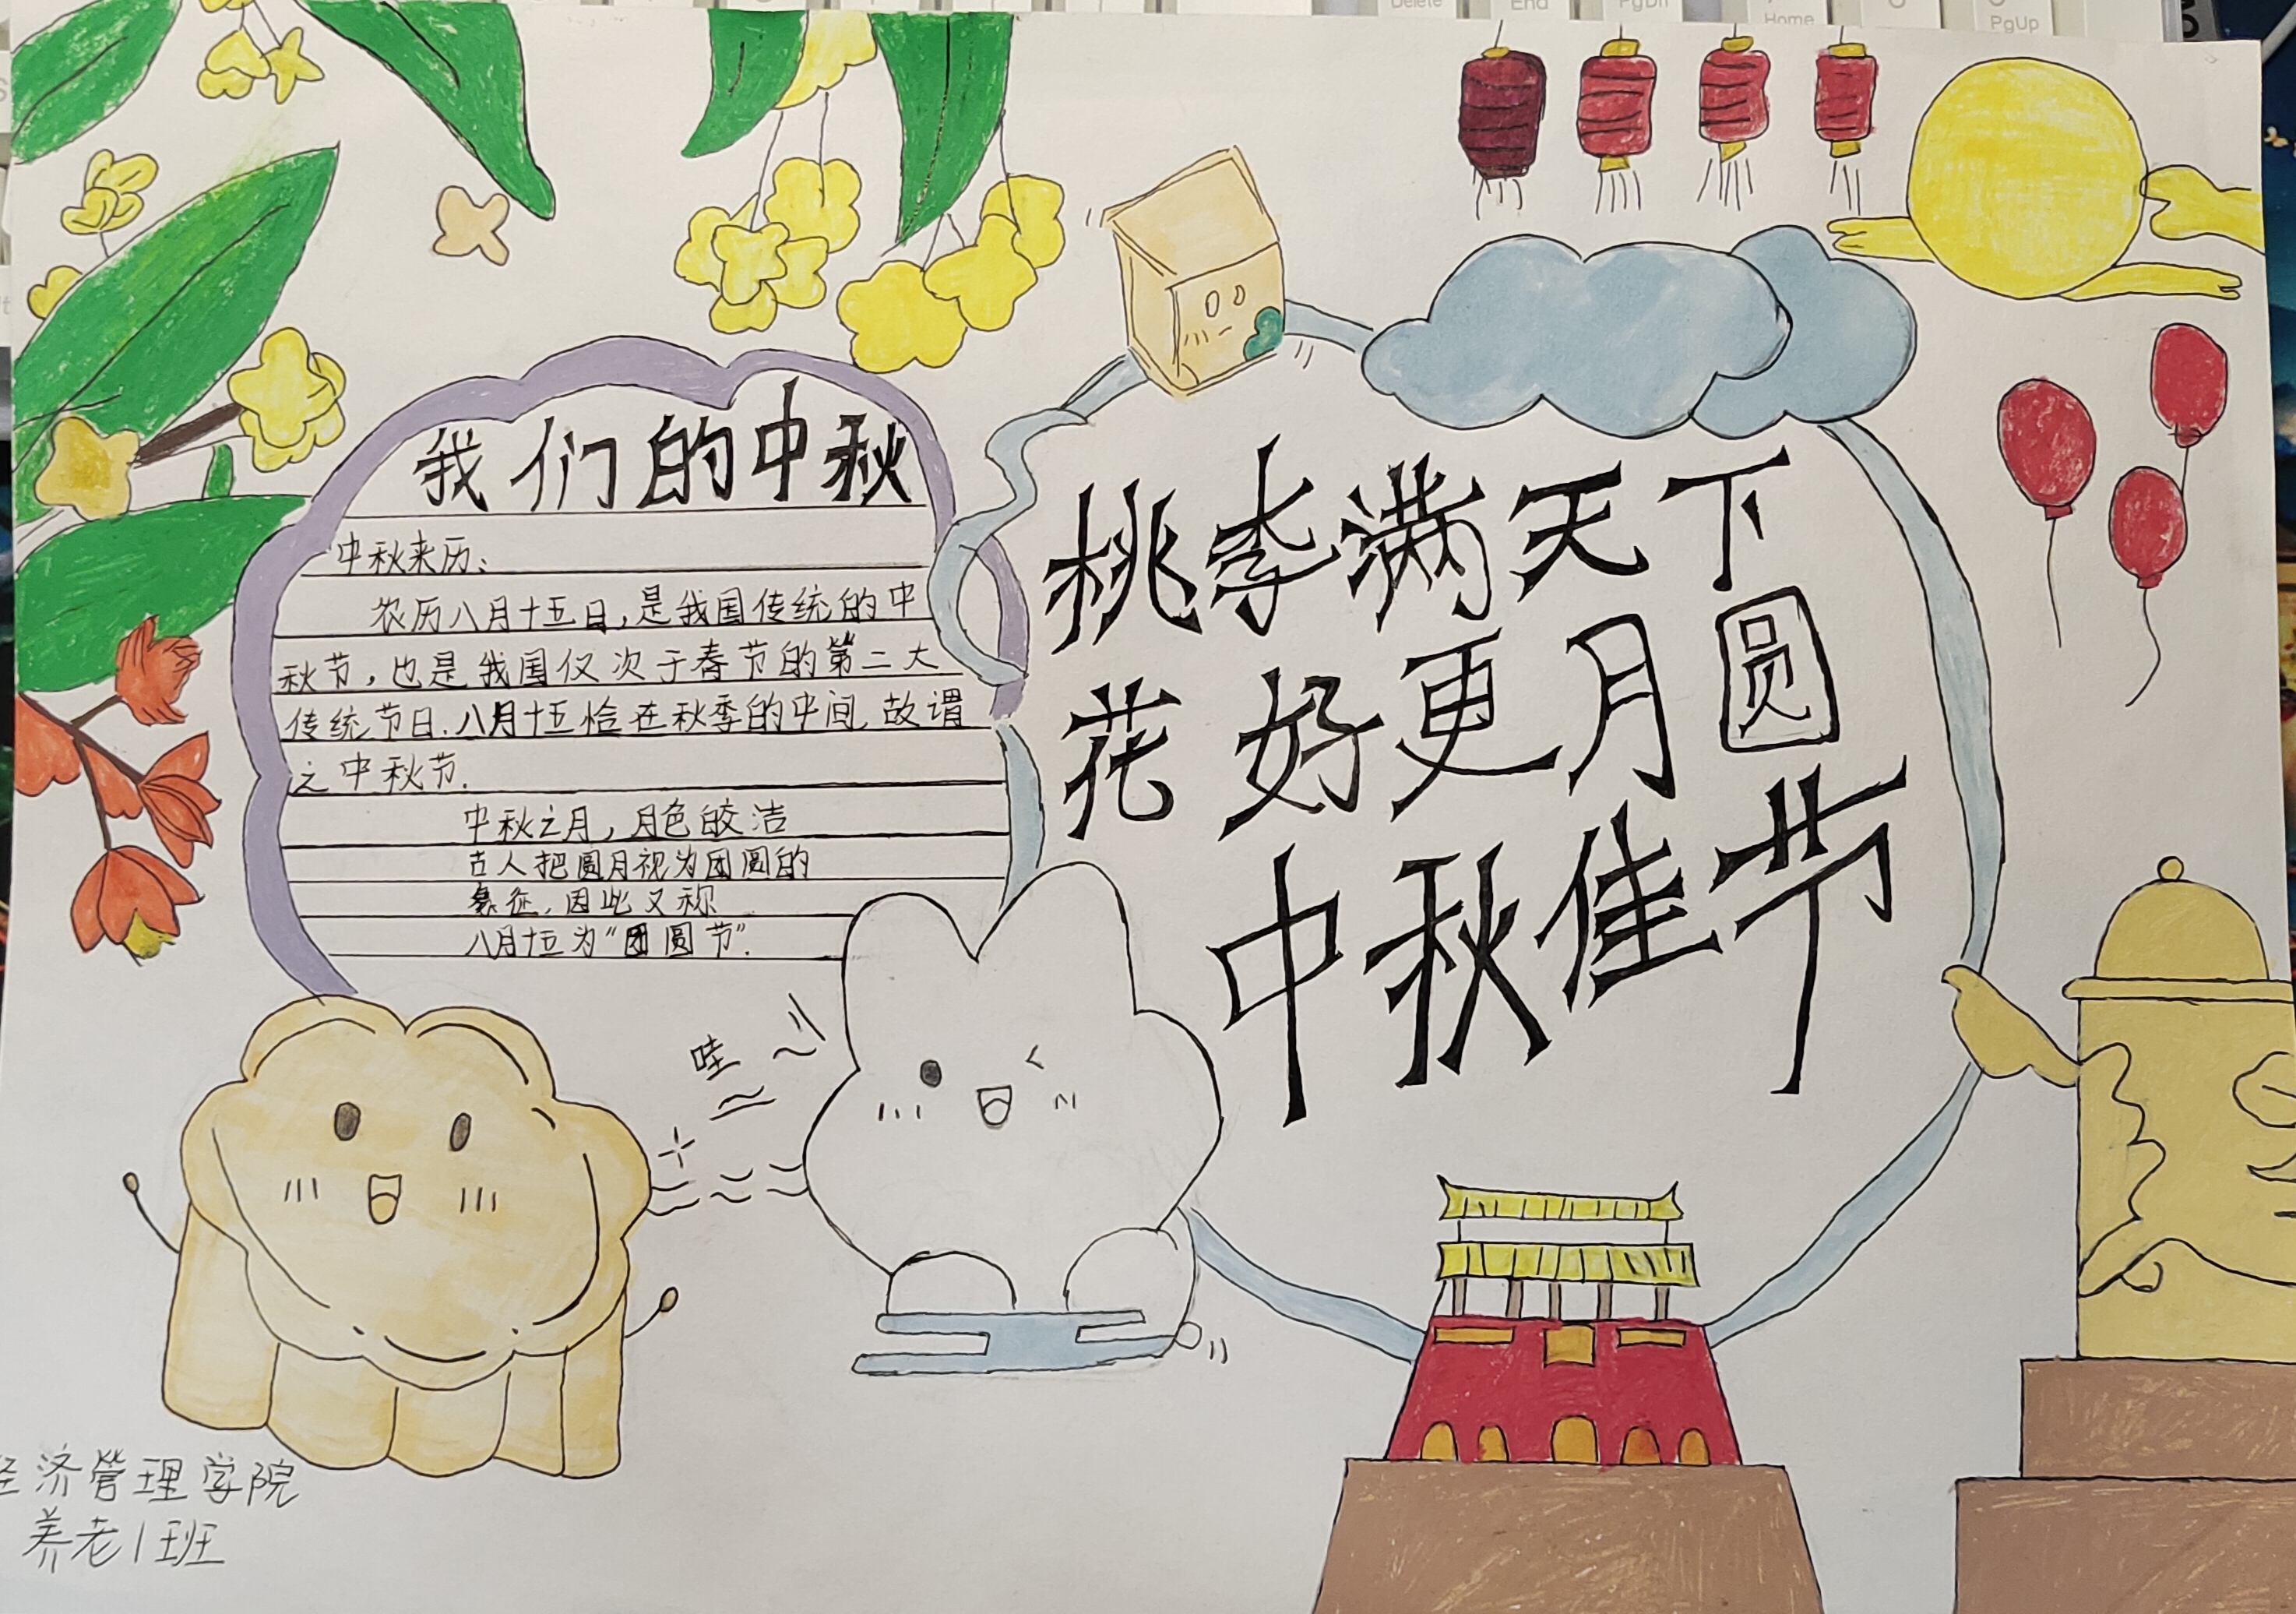 Delete
End
PgDn
Home
PgUp
我们的中秋
中秋来历:
农历八月十五日,是我国传统的中
秋节,也是我国仅次于春节的第二大
传统节日.八月十五恰在秋季的中间,故谓
之中秋节.
中秋之月,月色皎洁
古人把圆月视为团圆的
象征,因此又称
八月十五为“团圆节”.
哇
桃李满天下
花好更月圆
中秋佳节
经济管理学院
养老1班